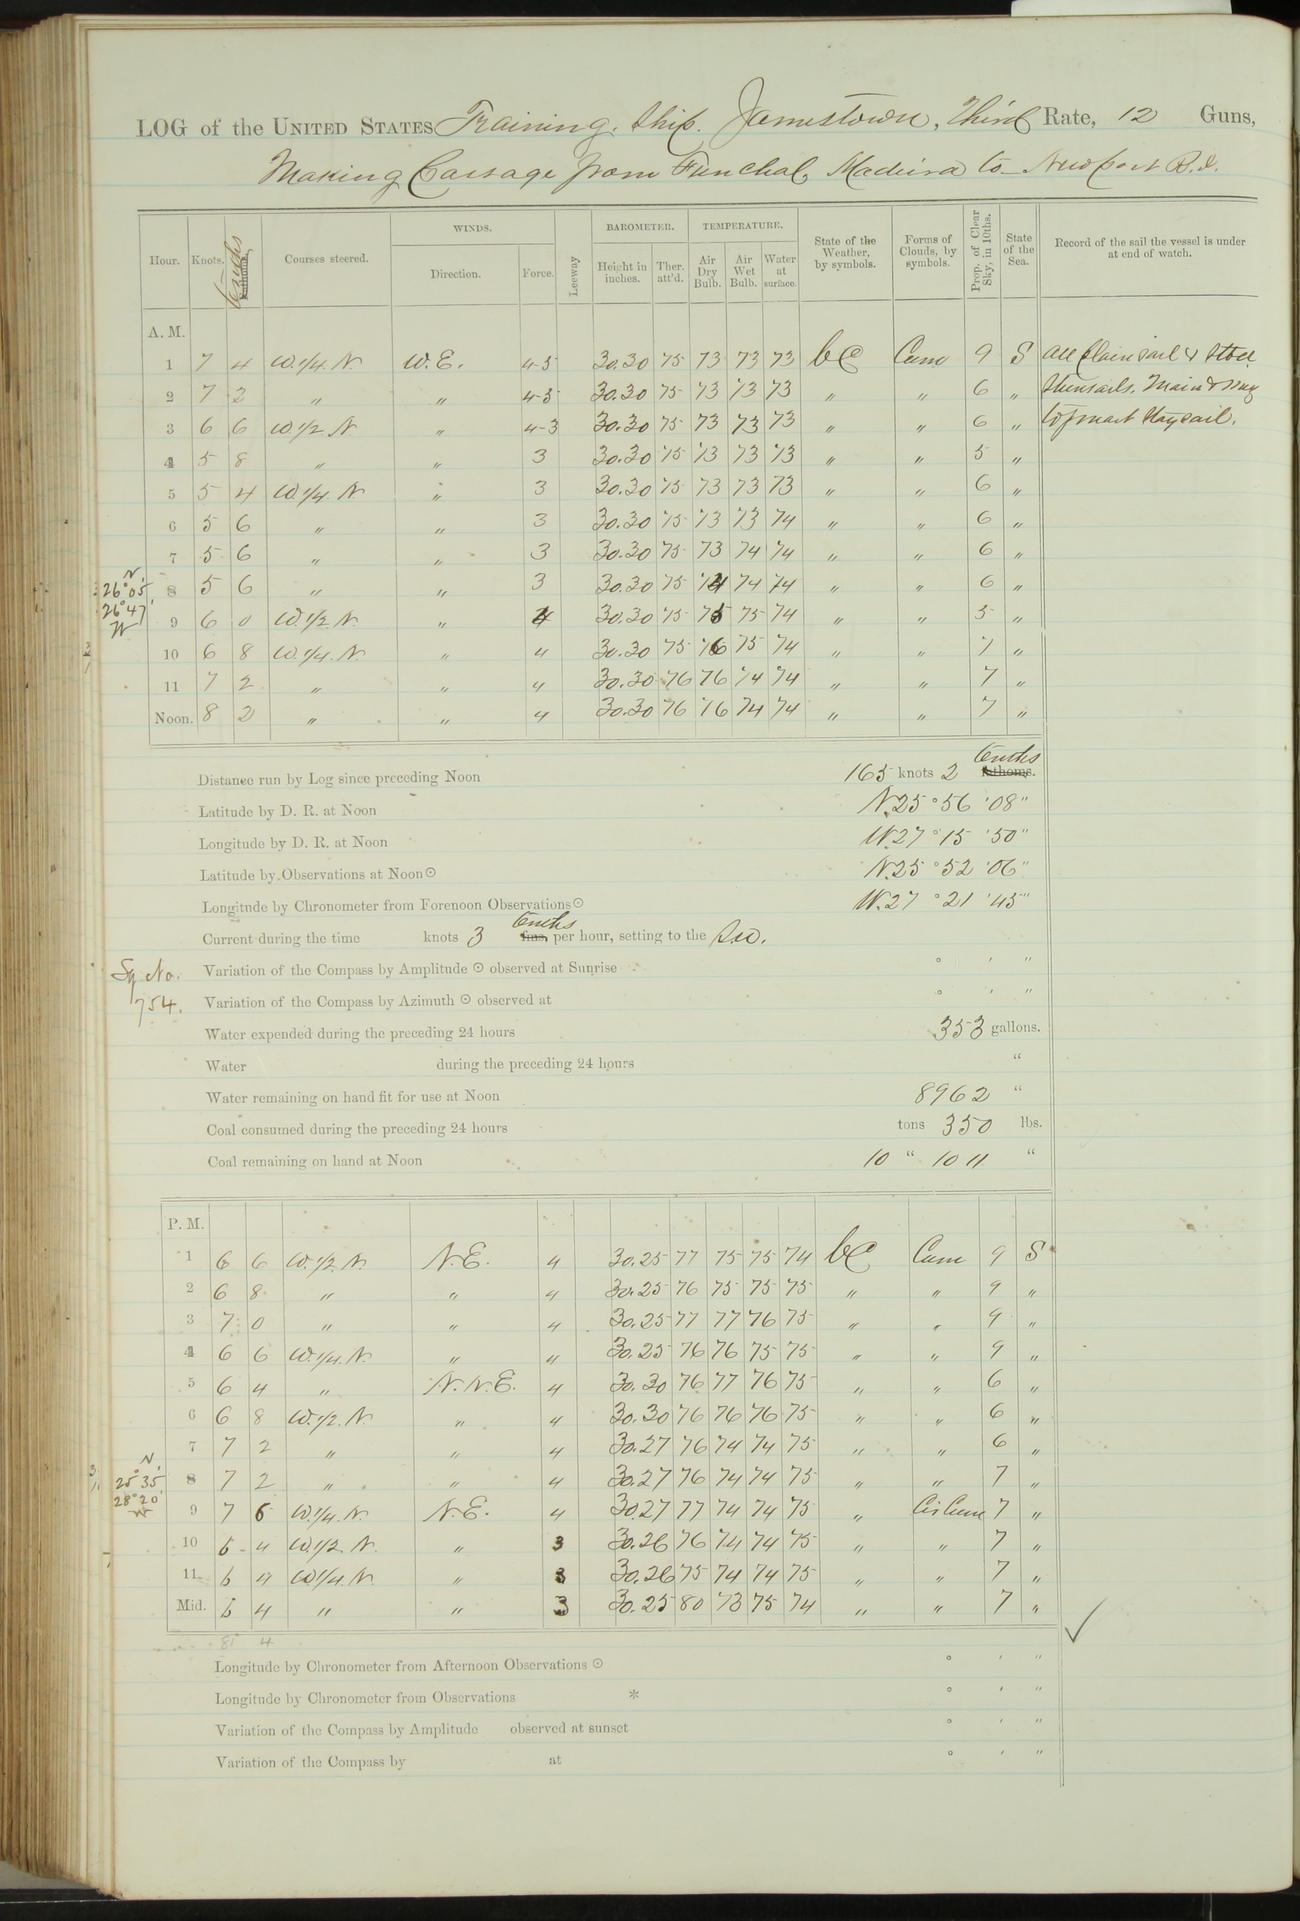 LOG of the UNITED STATES Training Ship Jamestown, Third Rate, 12 Guns,
Making Passage from Funchal, Madeira to Newport R.I.
Hour. Knots. Tenths Fathoms. Courses steered. WINDS. Direction. Force. Leeway BAROMETER. Height in inches. Ther. att'd. TEMPERATURE. Air Dry Bulb. Air Wet Bulb. Water at surface. State of the Weather, by symbols. Forms of Clouds, by symbols. Prop. of Clear Sky, in 10ths. State of the Sea. Record of the sail the vessel is under at end of watch.
A. M.
1 7 4 W. 1/4. N. N. E. 4-5 30.30 75 73 73 73 bc Cum 9 S All plain sail & Stbd
2 7 2 " " 4-5 30.30 75 73 73 73 " " 6 " Stunsails. Main & Miz
3 6 6 W 1/2 N " 4-3 30.30 75 73 73 73 " " 6 " topmast staysail.
4 5 8 " " 3 30.30 75 73 73 73 " " 5 "
5 5 4 W 1/4. N " 3 30.30 75 73 73 73 " " 6 "
6 5 6 " " 3 30.30 75 73 73 74 " " 6 "
7 5 6 " " 3 30.30 75 73 74 74 " " 6 "
N
26° 05'
26° 47'
W
8 5 6 " " 3 30.30 75 74 74 74 " " 6 "
9 6 0 W. 1/2. N. " 4 30.30 75 75 75 74 " " 5 "
10 6 8 W. 1/4. N. " 4 30.30 75 76 75 74 " " 7 "
11 7 2 " " 4 30.30 76 76 74 74 " " 7 "
Noon. 8 2 " " 4 30.30 76 76 74 74 " " 7 "
Distance run by Log since preceding Noon 165 knots 2 tenths fathoms.
Latitude by D. R. at Noon N. 25 ° 56 ' 08 "
Longitude by D. R. at Noon W. 27 ° 15 ' 50 "
Latitude by Observations at Noon ⊙ N. 25 ° 52 ' 06 "
Longitude by Chronometer from Forenoon Observations ⊙ W. 27 ° 21 ' 45 "
Current during the time knots 3 tenths fms. per hour, setting to the Sd.
Variation of the Compass by Amplitude ⊙ observed at Sunrise ° ' "
Sig No.
754.
Variation of the Compass by Azimuth ⊙ observed at ° ' "
Water expended during the preceding 24 hours 353 gallons.
Water during the preceding 24 hours "
Water remaining on hand fit for use at Noon 8962 "
Coal consumed during the preceding 24 hours tons 350 lbs.
Coal remaining on hand at Noon 10 " 1011 "
P. M.
1 6 6 W. 1/2. N. N. E. 4 30.25 77 75 75 74 bc Cum 9 S
2 6 8 " " 4 30.25 76 75 75 75 " " 9 "
3 7 0 " " 4 30.25 77 77 76 75 " " 9 "
4 6 6 W. 1/4. N. " 4 30.25 76 76 75 75 " " 9 "
5 6 4 " N. N. E. 4 30.30 76 77 76 75 " " 6 "
6 6 8 W. 1/2. N. " 4 30.30 76 76 76 75 " " 6 "
7 7 2 " " 4 30.27 76 74 74 75 " " 6 "
N
25° 35'
28° 20'
W
8 7 2 " " 4 30.27 76 74 74 75 " " 7 "
9 7 6 W. 1/4. N. N. E. 4 30.27 77 74 74 75 " Cir Cum 7 "
10 6 4 W. 1/2. N. " 3 30.26 76 74 74 75 " " 7 "
11 6 4 W 1/4. N. " 3 30.26 75 74 74 75 " " 7 "
Mid. 6 4 " " 3 30.25 80 73 75 74 " " 7 "
81 4
Longitude by Chronometer from Afternoon Observations ⊙ ° ' "
Longitude by Chronometer from Observations * ° ' "
Variation of the Compass by Amplitude observed at sunset ° ' "
Variation of the Compass by at ° ' "